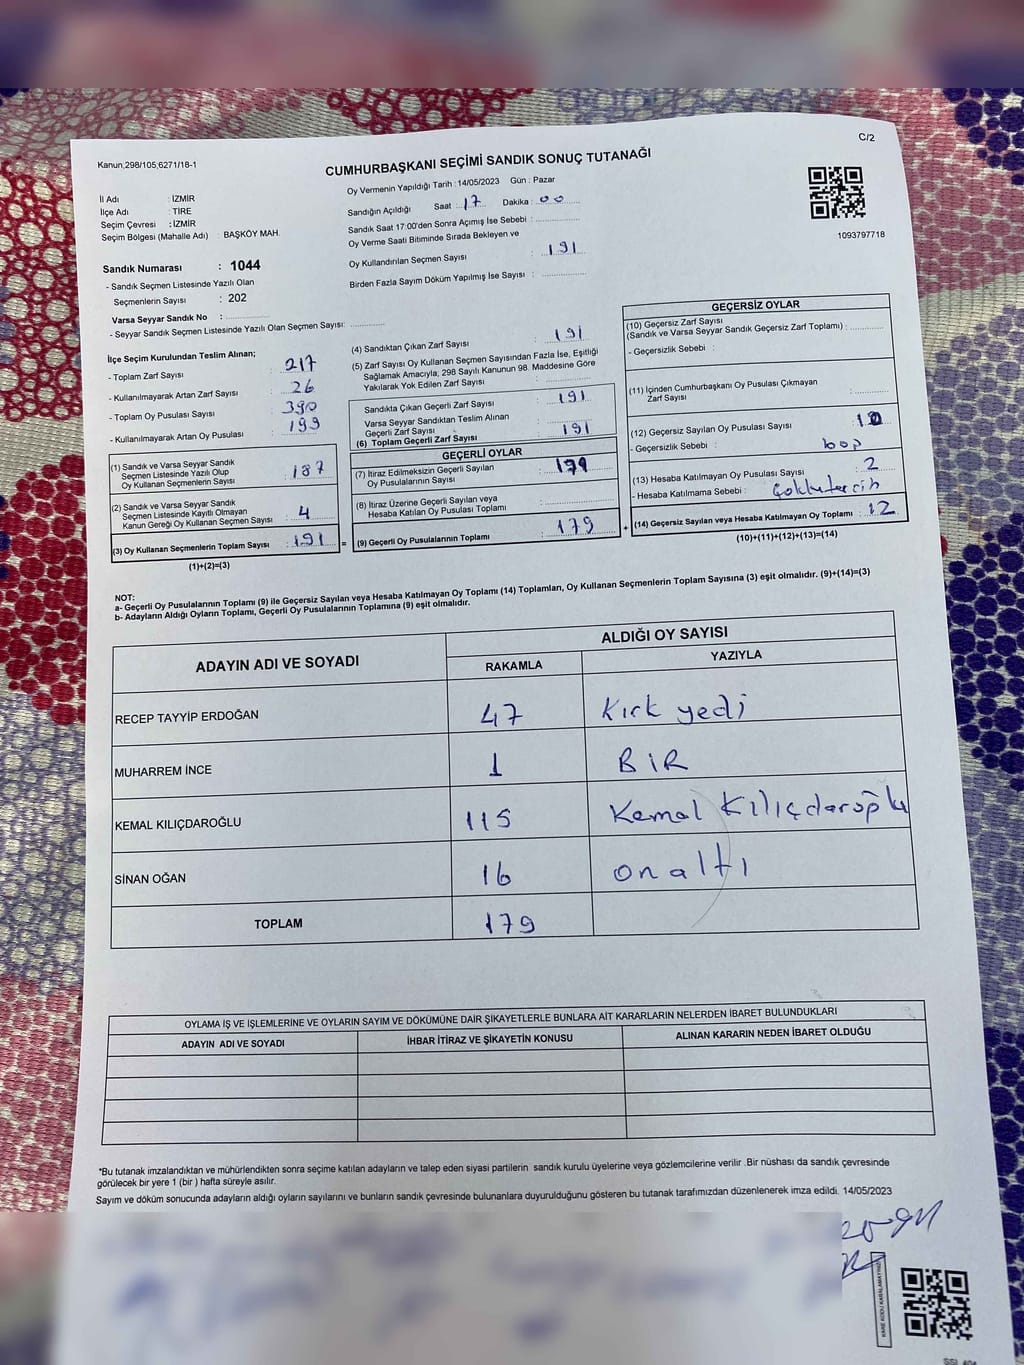 C/2
Kanun;298/105,6271/18-1
CUMHURBAŞKANI SEÇİMİ SANDIK SONUÇ TUTANAĞI
İl Adı : İZMİR
İlçe Adı : TİRE
Seçim Çevresi : İZMİR
Seçim Bölgesi (Mahalle Adı) : BAŞKÖY MAH.
Oy Vermenin Yapıldığı Tarih : 14/05/2023 Gün : Pazar
Sandığın Açıldığı Saat : 17 Dakika : 00
Sandık Saat 17:00'den Sonra Açımış İse Sebebi :
Oy Verme Saati Bitiminde Sırada Bekleyen ve
Oy Kullandırılan Seçmen Sayısı : 191
Birden Fazla Sayım Döküm Yapılmış İse Sayısı :
1093797718
Sandık Numarası : 1044
- Sandık Seçmen Listesinde Yazılı Olan
Seçmenlerin Sayısı : 202
Varsa Seyyar Sandık No :
- Seyyar Sandık Seçmen Listesinde Yazılı Olan Seçmen Sayısı:
İlçe Seçim Kurulundan Teslim Alınan;
- Toplam Zarf Sayısı : 217
- Kullanılmayarak Artan Zarf Sayısı : 26
- Toplam Oy Pusulası Sayısı : 390
- Kullanılmayarak Artan Oy Pusulası : 199
(1) Sandık ve Varsa Seyyar Sandık
Seçmen Listesinde Yazılı Olup
Oy Kullanan Seçmenlerin Sayısı : 187
(2) Sandık ve Varsa Seyyar Sandık
Seçmen Listesinde Kayıtlı Olmayan
Kanun Gereği Oy Kullanan Seçmen Sayısı : 4
(3) Oy Kullanan Seçmenlerin Toplam Sayısı : 191
(1)+(2)=(3)
=
(4) Sandıktan Çıkan Zarf Sayısı : 191
(5) Zarf Sayısı Oy Kullanan Seçmen Sayısından Fazla İse, Eşitliği
Sağlamak Amacıyla, 298 Sayılı Kanunun 98. Maddesine Göre
Yakılarak Yok Edilen Zarf Sayısı :
Sandıkta Çıkan Geçerli Zarf Sayısı : 191
Varsa Seyyar Sandıktan Teslim Alınan
Geçerli Zarf Sayısı :
(6) Toplam Geçerli Zarf Sayısı : 191
GEÇERLİ OYLAR
(7) İtiraz Edilmeksizin Geçerli Sayılan
Oy Pusulalarının Sayısı : 179
(8) İtiraz Üzerine Geçerli Sayılan veya
Hesaba Katılan Oy Pusulası Toplamı :
(9) Geçerli Oy Pusulalarının Toplamı : 179
+
GEÇERSİZ OYLAR
(10) Geçersiz Zarf Sayısı
(Sandık ve Varsa Seyyar Sandık Geçersiz Zarf Toplamı) :
- Geçersizlik Sebebi :
(11) İçinden Cumhurbaşkanı Oy Pusulası Çıkmayan
Zarf Sayısı :
(12) Geçersiz Sayılan Oy Pusulası Sayısı : 10
- Geçersizlik Sebebi : boş
(13) Hesaba Katılmayan Oy Pusulası Sayısı : 2
- Hesaba Katılmama Sebebi : Çoklu tercih
(14) Geçersiz Sayılan veya Hesaba Katılmayan Oy Toplamı : 12
(10)+(11)+(12)+(13)=(14)
NOT:
a- Geçerli Oy Pusulalarının Toplamı (9) ile Geçersiz Sayılan veya Hesaba Katılmayan Oy Toplamı (14) Toplamları, Oy Kullanan Seçmenlerin Toplam Sayısına (3) eşit olmalıdır. (9)+(14)=(3)
b- Adayların Aldığı Oyların Toplamı, Geçerli Oy Pusulalarının Toplamına (9) eşit olmalıdır.
ADAYIN ADI VE SOYADI ALDIĞI OY SAYISI
RAKAMLA YAZIYLA
RECEP TAYYİP ERDOĞAN 47 Kırk yedi
MUHARREM İNCE 1 BİR
KEMAL KILIÇDAROĞLU 115 Kemal Kılıçdaroğlu
SİNAN OĞAN 16 on altı
TOPLAM 179
OYLAMA İŞ VE İŞLEMLERİNE VE OYLARIN SAYIM VE DÖKÜMÜNE DAİR ŞİKAYETLERLE BUNLARA AİT KARARLARIN NELERDEN İBARET BULUNDUKLARI
ADAYIN ADI VE SOYADI İHBAR İTİRAZ VE ŞİKAYETİN KONUSU ALINAN KARARIN NEDEN İBARET OLDUĞU
*Bu tutanak imzalandıktan ve mühürlendikten sonra seçime katılan adayların ve talep eden siyasi partilerin sandık kurulu üyelerine veya gözlemcilerine verilir .Bir nüshası da sandık çevresinde
görülecek bir yere 1 (bir ) hafta süreyle asılır.
Sayım ve döküm sonucunda adayların aldığı oyların sayılarını ve bunların sandık çevresinde bulunanlara duyurulduğunu gösteren bu tutanak tarafımızdan düzenlenerek imza edildi. 14/05/2023
KARE KODU KARALAMAYINIZ